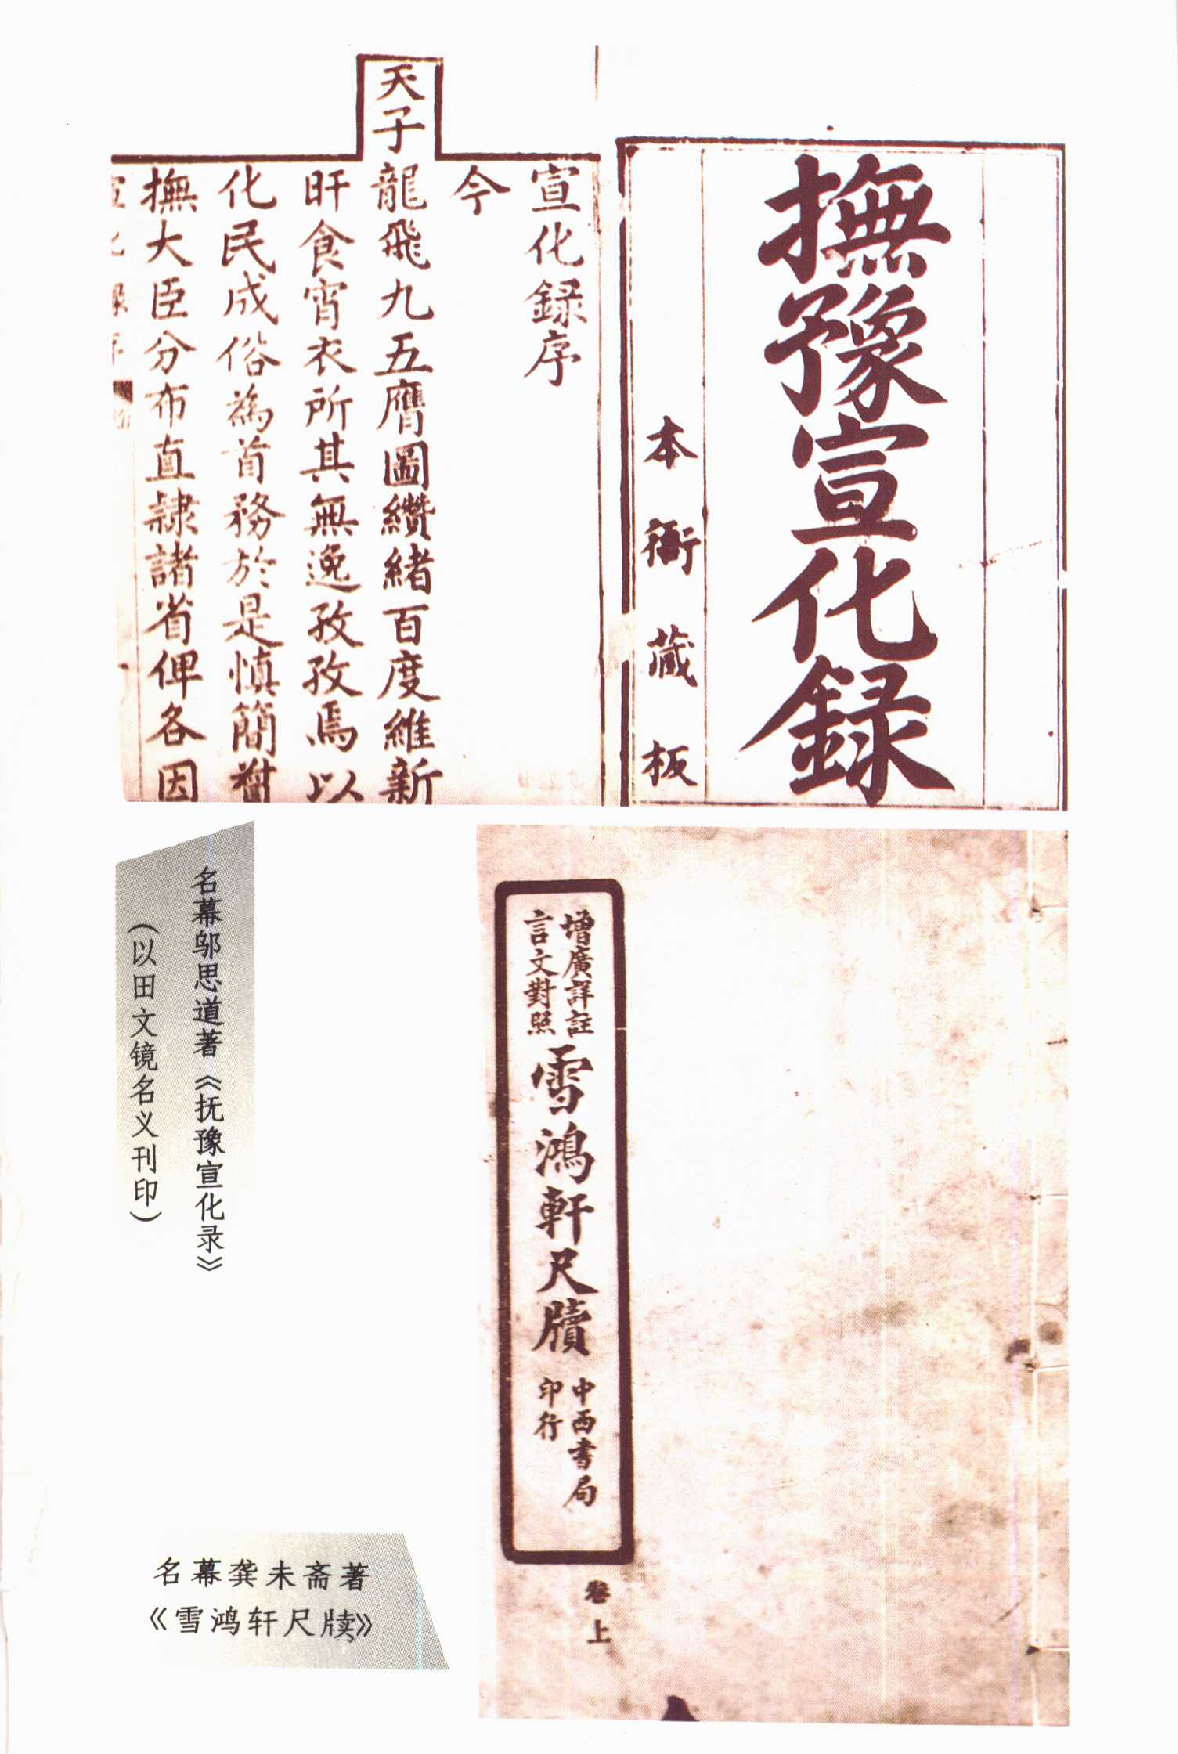 撫豫宣化錄
本衙藏板
宣化録序
今
天子龍飛九五膺圖纘緒百度維新
旰食宵衣所其無逸孜孜焉以
化民成俗為首務於是慎簡督
撫大臣分布直隷諸省俾各因
名幕邬思道著《抚豫宣化录》
（以田文镜名义刊印）
增廣詳註
言文對照
雪鴻軒尺牘
中西書局
印行
卷上
名幕龚未斋著
《雪鸿轩尺牍》